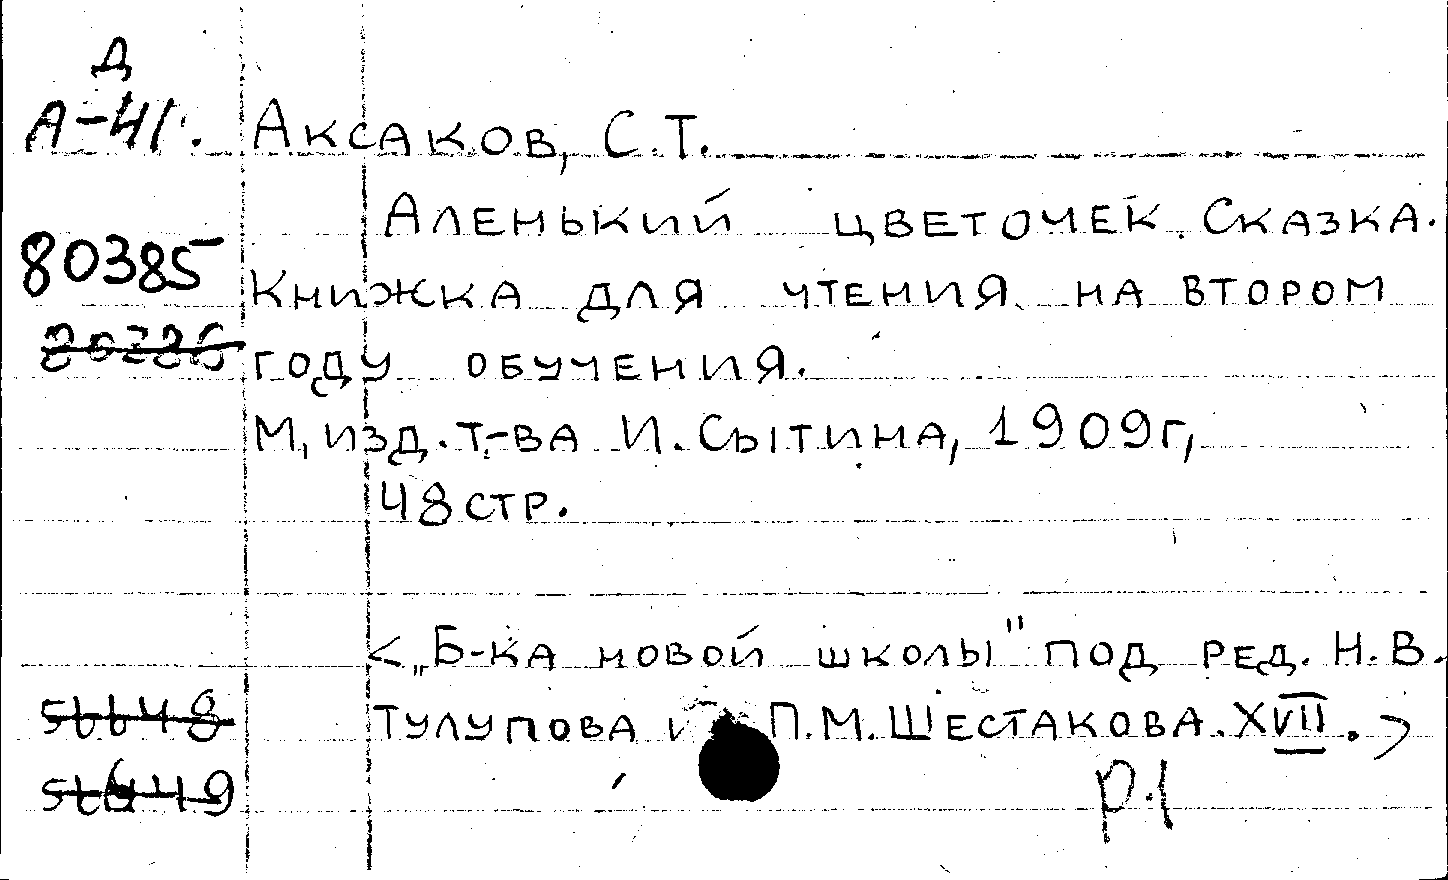 Д
А-41. Аксаков, С.Т.
Аленький цветочек. Сказка.
80385
Книжка для чтения на втором
году обучения.
М, изд. Т-ва И. Сытина, 1909г,
48 стр.
<„Б-ка новой школы" под ред. Н.В.
56648
Тулупова и П.М. Шестакова. XVII.>
56649
р.1